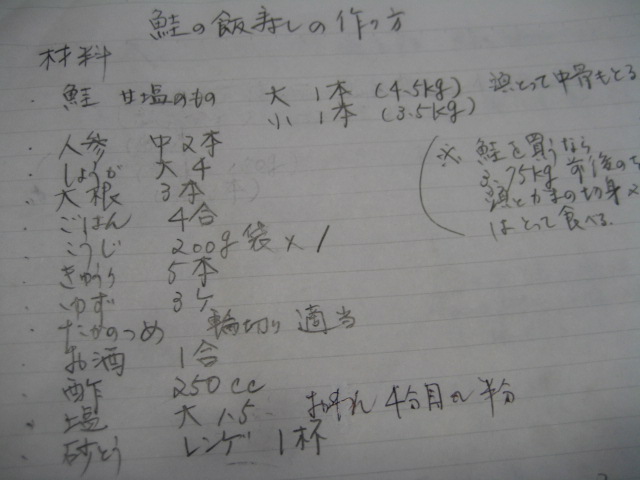 鮭の飯寿しの作り方
材料
・鮭 甘塩のもの 大 1本 (4.5kg) 頭とって中骨もとる
小 1本 (3.5kg)
・人参 中2本
・しょうが 大4
・大根 3本
・ごはん 4合
・こうじ 200g袋×1
・きゅうり 5本
・ゆず 3ケ
・たかのつめ 輪切り 適当
・お酒 1合
・酢 250cc
・塩 大 4分目の半分
・砂とう レンゲ 1杯
※ 鮭を買うなら
3.75kg 前後の
頭とかまの切身
はとって食べる。